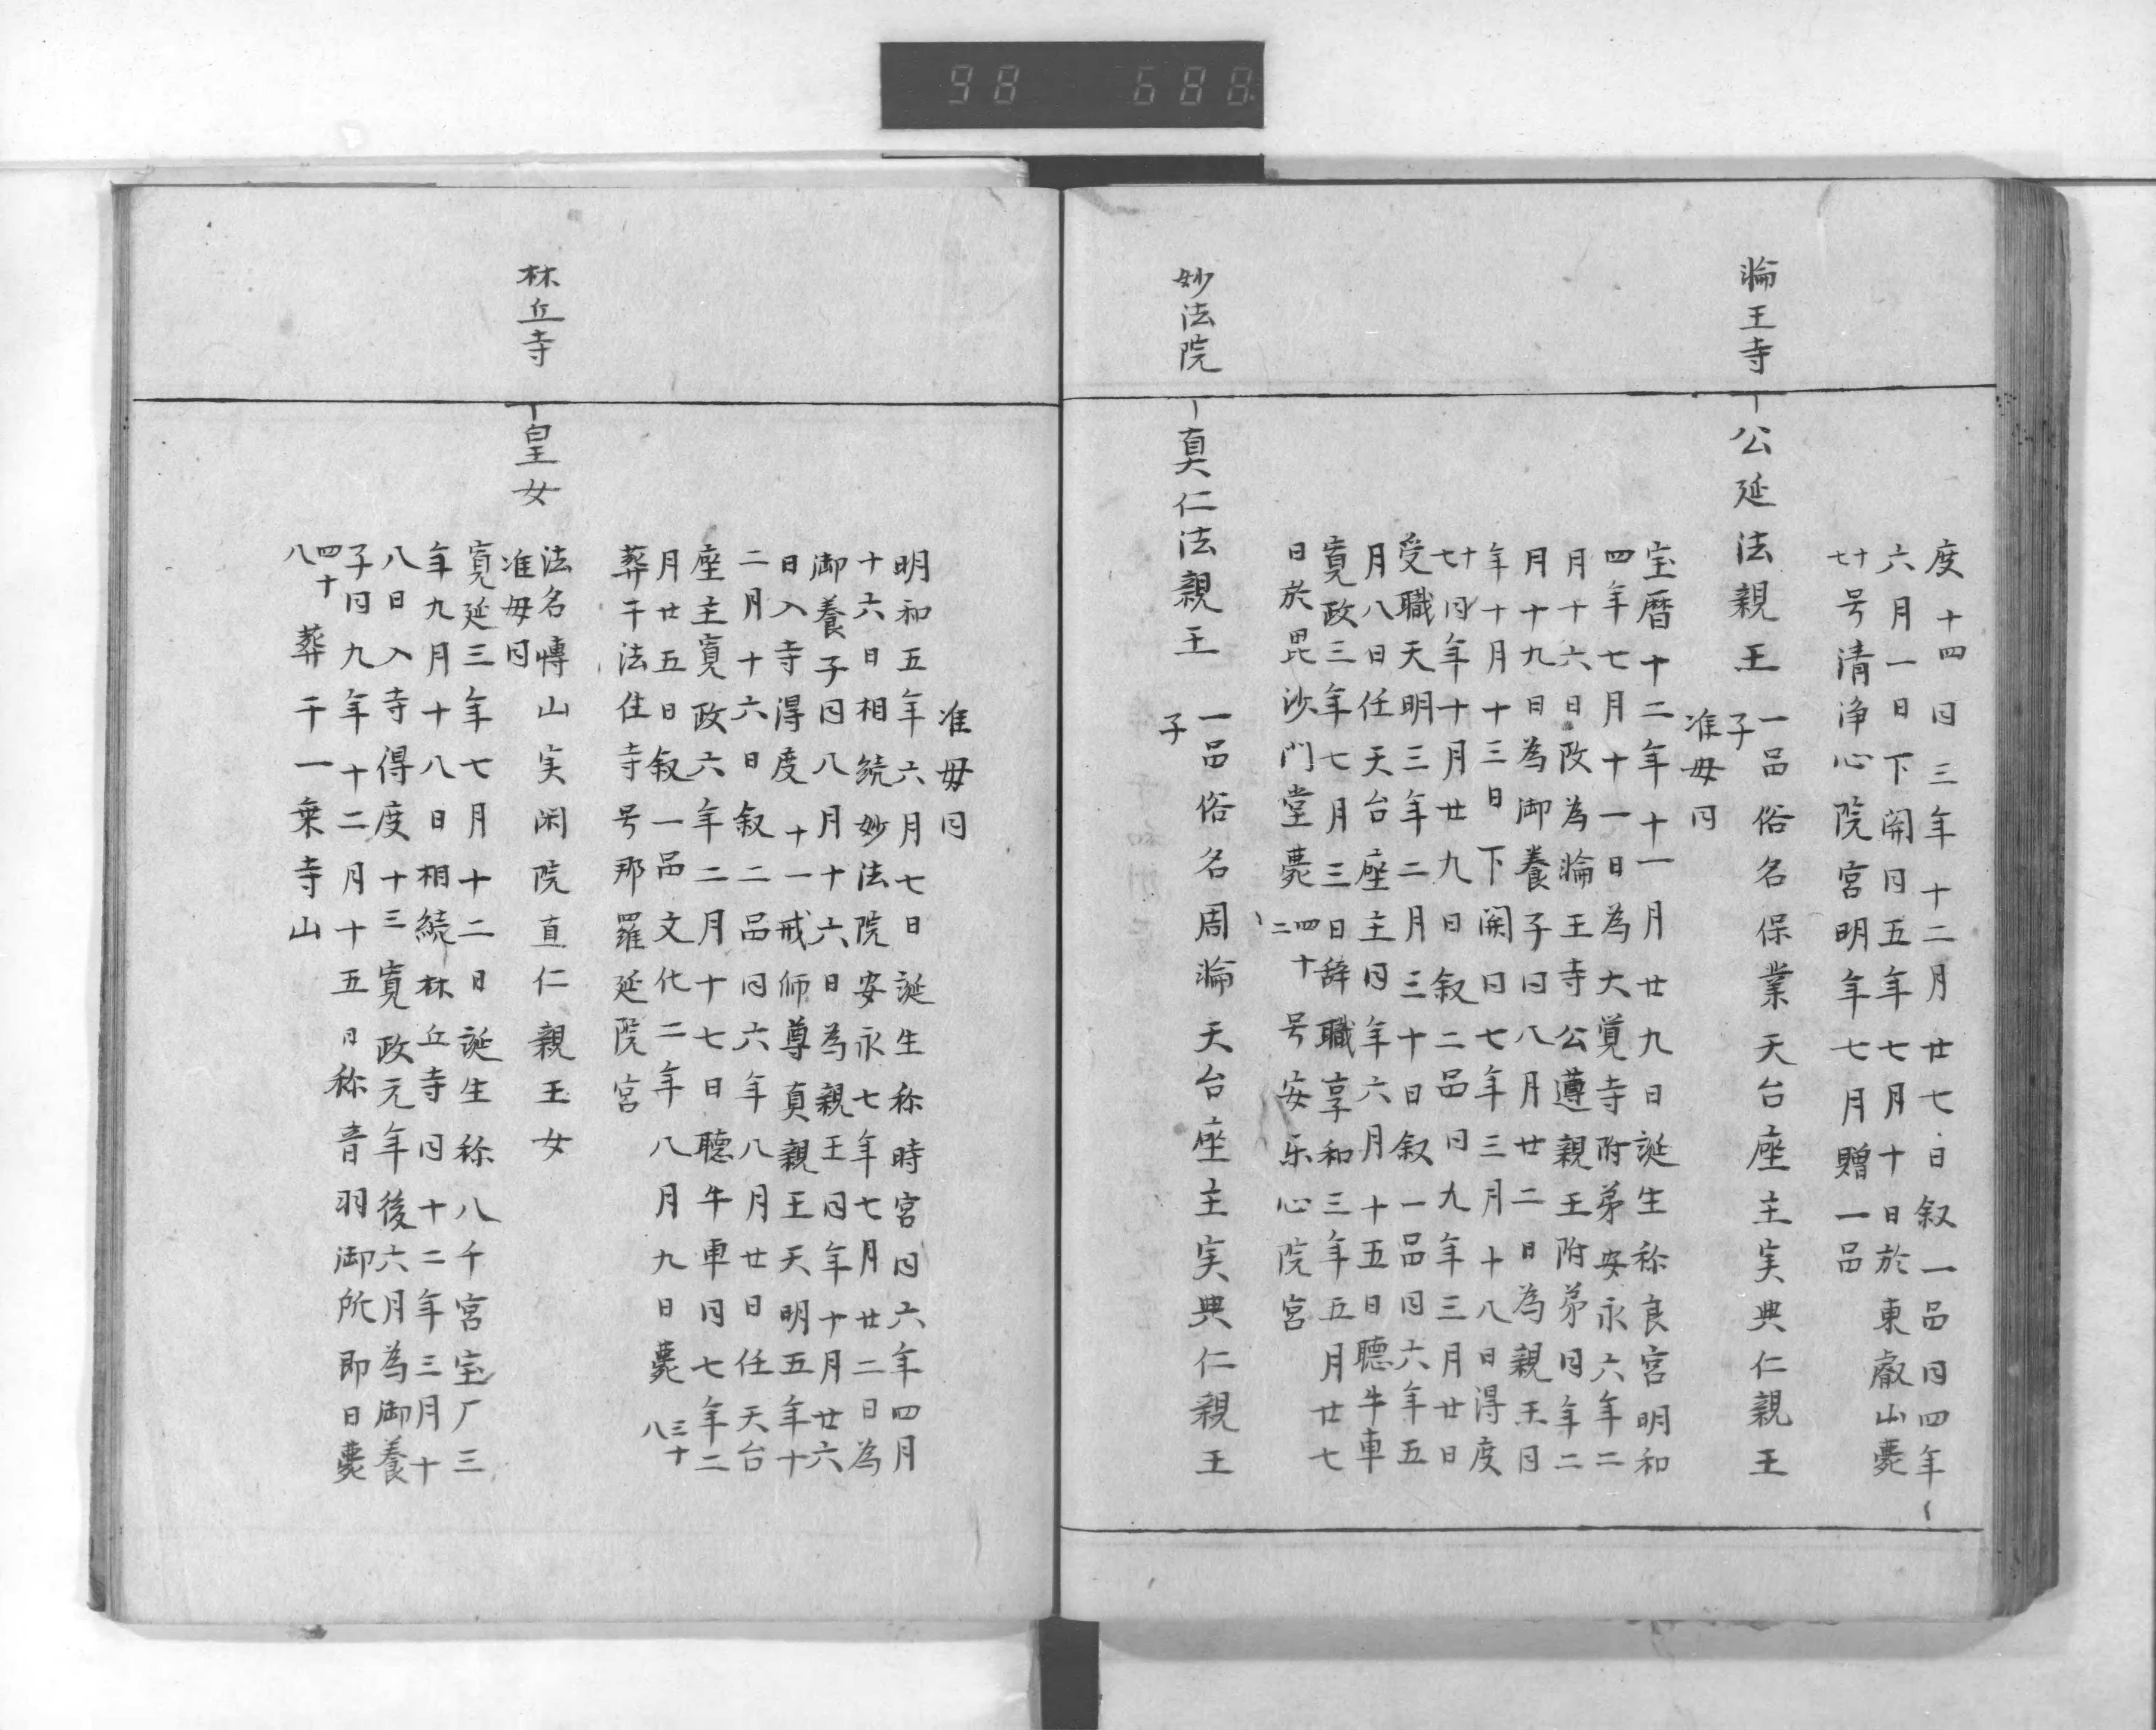 98 688
度十四同三年十二月廿七日叙一品同四年
六月一日下関同五年七月十日於東叡山薨
七十号清浄心院宮明年七月贈一品
輪王寺
公延法親王
一品俗名保業天台座主実典仁親王
子
准母同
宝暦十二年十一月廿九日誕生称良宮明和
四年七月十一日為大覚寺附弟安永六年二
月十六日改為輪王寺公遵親王附弟同年二
月十九日為御養子同八月廿二日為親王同
年十月十三日下関同七年三月十八日得度
十七同年十月廿九日叙二品同九年三月廿日
受職天明三年二月三十日叙一品同六年五
月八日任天台座主同年六月十五日聴牛車
寛政三年七月三日辞職享和三年五月廿七
日於毘沙門堂薨四十二号安楽心院宮
妙法院
真仁法親王
一品俗名周輪天台座主実典仁親王
子
准母同
明和五年六月七日誕生称時宮同六年四月
十六日相続妙法院安永七年七月廿二日為
御養子同八月十六日為親王同年十月廿六
日入寺得度十一戒師尊真親王天明五年十
二月十六日叙二品同六年八月廿日任天台
座主寛政六年二月十七日聴牛車同七年二
月廿五日叙一品文化二年八月九日薨三十八
葬于法住寺号那羅延院宮
林丘寺
皇女
法名博山実閑院直仁親王女
准母同
寛延三年七月十二日誕生称八千宮宝厂三
年九月十八日相続林丘寺同十二年三月十
八日入寺得度十三寛政元年後六月為御養
子同九年十二月十五日称音羽御所即日薨
四十八葬于一乗寺山